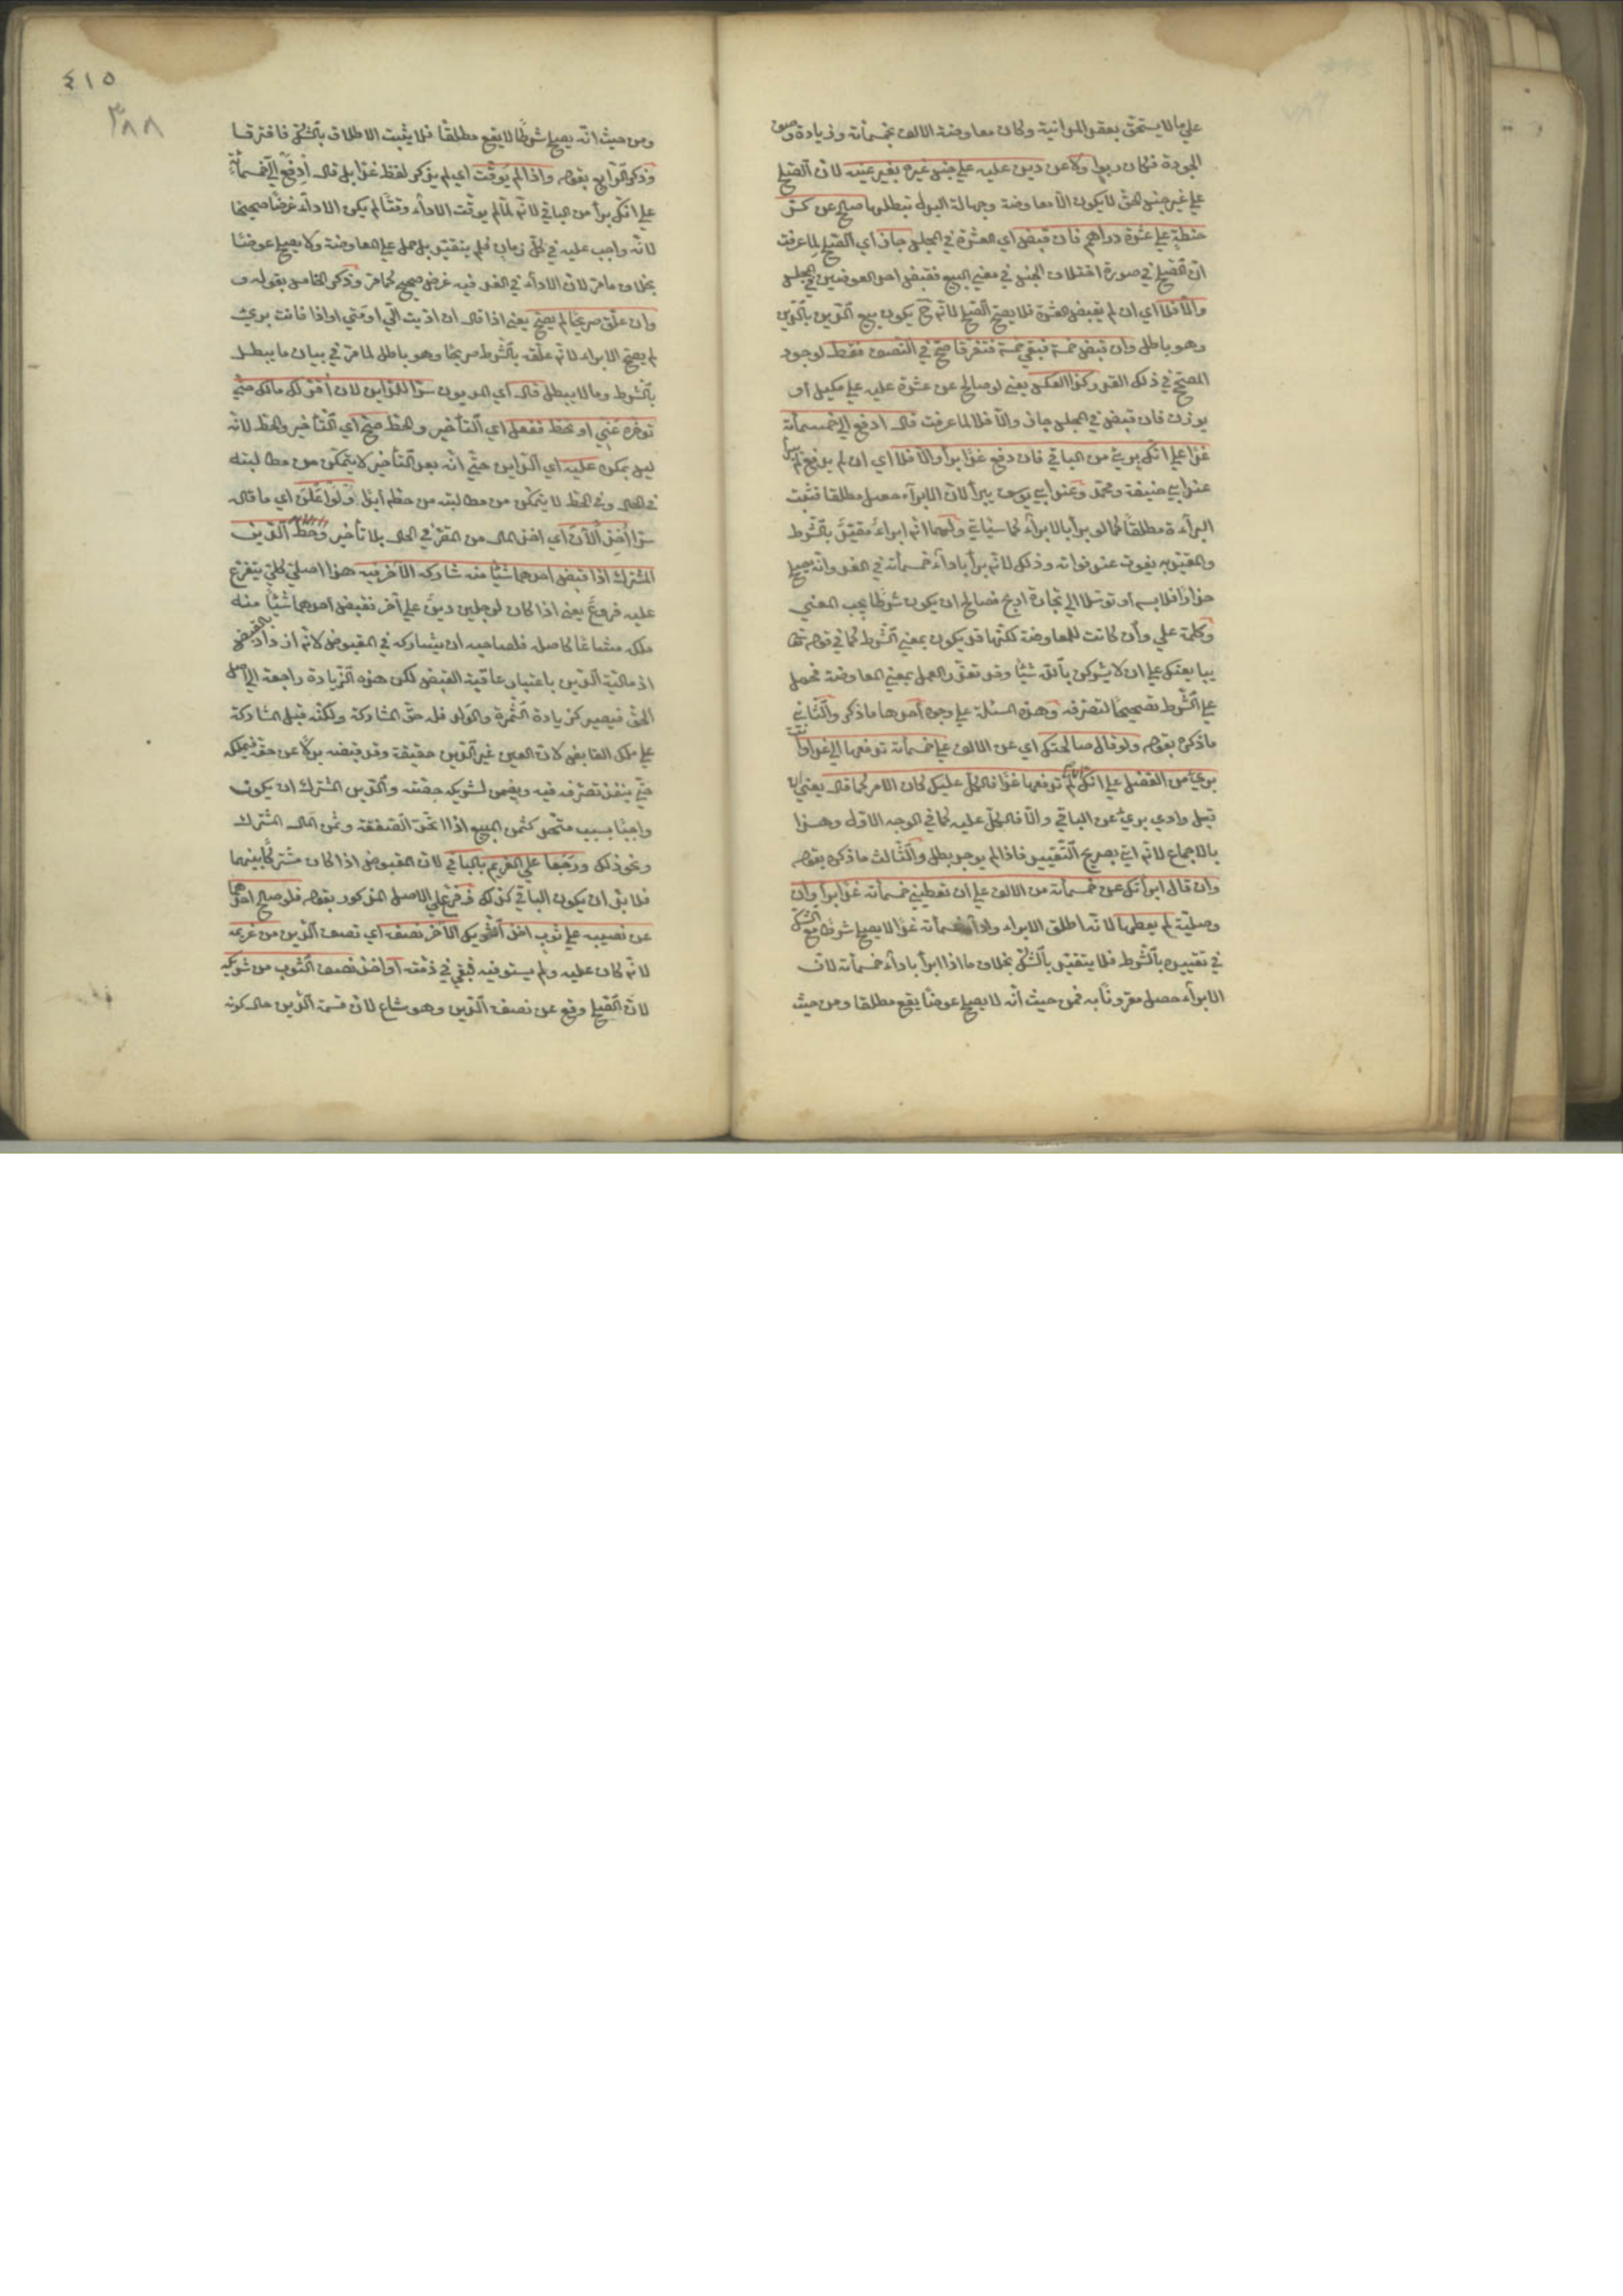 علي ما لا يستحق بعقد المداينة وكان معاوضة الالف بخمسمأته وزيادة وصف
الجودة فكان ربوا ولا عن دين عليه علي جنس غيره بغير عينه لانّ الصّلح
علي غير جنس الحق لا يكون الّا معاوضة وجهالة البدل تبطلها صالح عن كرّ
حنطةٍ علي عشرة دراهم فان قبض اي العشرة في المجلس جاز اي الصّلح لما عرفت
انّ الصّلح في صورة اختلاف الجنس في معني البيع فقبض احد العوضين في المجلس
والّا فلا اي ان لم يقبض العشرة فلا يصح الصّلح لانّه ح يكون بيع الدّين بالدّين
وهو باطل وان قبض خمسة فبقي خمسة فتفرقا صحّ في النّصف فقط لوجود
المصحّح في ذلك القدر وكذا العكس يعني لو صالح عن عشرة عليه علي مكيل أو
يوزن فان قبض في المجلس جاز والّا فلا لما عرفت قال ادفع اليّ خمسمأته
غدًا علي انّك بريء من الباقي فان دفع غدًا برأ والّا فلا اي ان لم يدفع لم يبرأ
عند ابي حنيفة ومحمّد وعند ابي يوسف يبرأ لانّ الابرآء حصل مطلقا فثبت
البرآءة مطلقًا كما لو برأ بالابرآء كما سيأتي ولهما انّه ابراءٌ مقيّد بالشّرط
والمقيّد به يفوت عند فواته وذلك لانّه برأ باداء خمسمأته في الغد وانّه يصلح
حذارًا فلابسه أو توسّلا الي تجارة اربح فصالح ان يكون شرطًا بحسب المعني
وكلمة علي وأن كانت للمعاوضة لكنّها قد يكون بمعني الشّرط كما في قوله تعا
يبايعنك علي ان لا يشركن باللّه شيئًا وقد تعذّر العمل بمعني المعاوضة فحمل
علي الشّرط تصحيحًا لتصرّفه وهذه المسئلة علي وجوه أحدها ما ذكر والثّاني
ماذكره بقوله ولو قال صالحتك اي عن الالف علي خمسمأته تدفعها اليّ غدا وانت
بريءٌ من الفضل علي انّك ان لم تدفعها غدًا فالكلّ عليك كان الامر كما قال يعني ان
قبل وادي بريءٌ عن الباقي والّا فالكلّ عليه كما في الوجه الاول وهـذا
بالاجماع لانّه اتي بصريح التّقييد فاذا لم يوجد بطل والثّالث ما ذكره بقوله
وان قال ابرأتك عن خمسمأته من الالف علي ان تعطيني خمسمأته غدًا برأ وان
وصليّة لم يعطها لانّه اطلق الابراء واداء خمسمأته غدًا لا يصلح شرطًا مع الشّكّ
في تقييده بالشّرط فلا يتقيّد بالشّكّ بخلاف ما اذا ابرأ باداء خمسمأته لانّ
الابرآء حصل مقرونًا به فمن حيث أنّه لا يصلح عوضًا يقع مطلقا ومن حيث
٤١٥
٣٨٨
ومن حيث انّه يصلح شرطًا لا يقع مطلقًا فلا يثبت الاطلاق بالشّكّ فافترقـا
وذكر الرّابع بقوله واذا لم يُوقّت اي لم يذكر لفظ غدًا بل قال ادفع اليّ خمسمأة
علي انّك برأ من الباقي لانّه لمّا لم يوقّت الاداء وقتًا لم يكن الاداء غرضًا صحيحًا
لانّه واجب عليه في كلّ زمان فلم يتقيّد بل حمل علي المعاوضة ولا يصلح عوضًا
بخلاف ما مرّ لانّ الاداء في الغد فيه غرض صحيح كما مرّ وذكر الخامس بقوله و
وان علّق صريحًا لم يصحّ يعني اذا قال ان ادّيت اليّ او متي او اذا فانت بريٌ
لم يصحّ الابراء لانّه علّقه بالشّرط صريحًا وهو باطل لما مرّ في بيان ما يبطـل
بالشّرط وما لا يبطل قال اي المديون سرًّا للدّاين لا اُقرّ لك مالك حتّي
تؤخره عنّي او تحطّ ففعل اي التّأخير والحطّ صحّ اي التّأخير والحطّ لانّه
ليس بمكره عليه اي الدّاين حتّي انّه بعد التّأخير لا يتمكّن من مطالبته
في الحال وفي الحطّ لا يتمكّن من مطالبته من حطّه أبدًا ولو أعلن اي ما قال
سرًّا أُخِذ الآن اي اخذ المال من المقرّ في الحال بلا تأخير وحطّ الدّين
المشترك اذا قبض احدهما شيئًا منه شاركه الآخر فيه هذا اصل كلّي يتفرّع
عليه فروعٌ يعني اذا كان لرجلين دينٌ علي آخر فقبض أحدهما شيئًا منه
ملكه مشاعًا كاصله فلصاحبه ان يشاركه في المقبوض لانّه ازداد بالقبض
اذ ماليّة الدّين باعتبار عاقبة القبض لكن هذه الزّيادة راجعة الي اصل
الحقّ فيصير كزيادة الثّمرة والولد فله حقّ المشاركة ولكنّه قبل المشاركة
علي ملك القابض لانّ العين غير الدّين حقيقة وقد قبضه بدلًا عن حقّه فيملكه
حتّي ينفذ تصرّفه فيه ويضمن لشريكه حصّته والدّين المشترك ان يكون
واجبًا بسبب متّحد كثمن المبيع اذا اتّحدّ الصّفقة وثمن المال المشترك
ونحو ذلك ورجعا علي الغريم بالباقي لانّ المقبوض اذا كان مشتركًا بينهما
فلا بدّ ان يكون الباقي كذلك فرّع علي الاصل المذكور بقوله فلو صالح احدهما
عن نصيبه علي ثوب اخذ الشّريك الآخر نصفه اي نصف الدّين من غريمه
لانّه كان عليه ولم يستوفيه فبقي في ذمّته أو اخذ نصف الثّوب من شريكه
لانّ الصّلح وقع عن نصف الدّين وهو شاع لانّ قسمة الدّين حال كونه